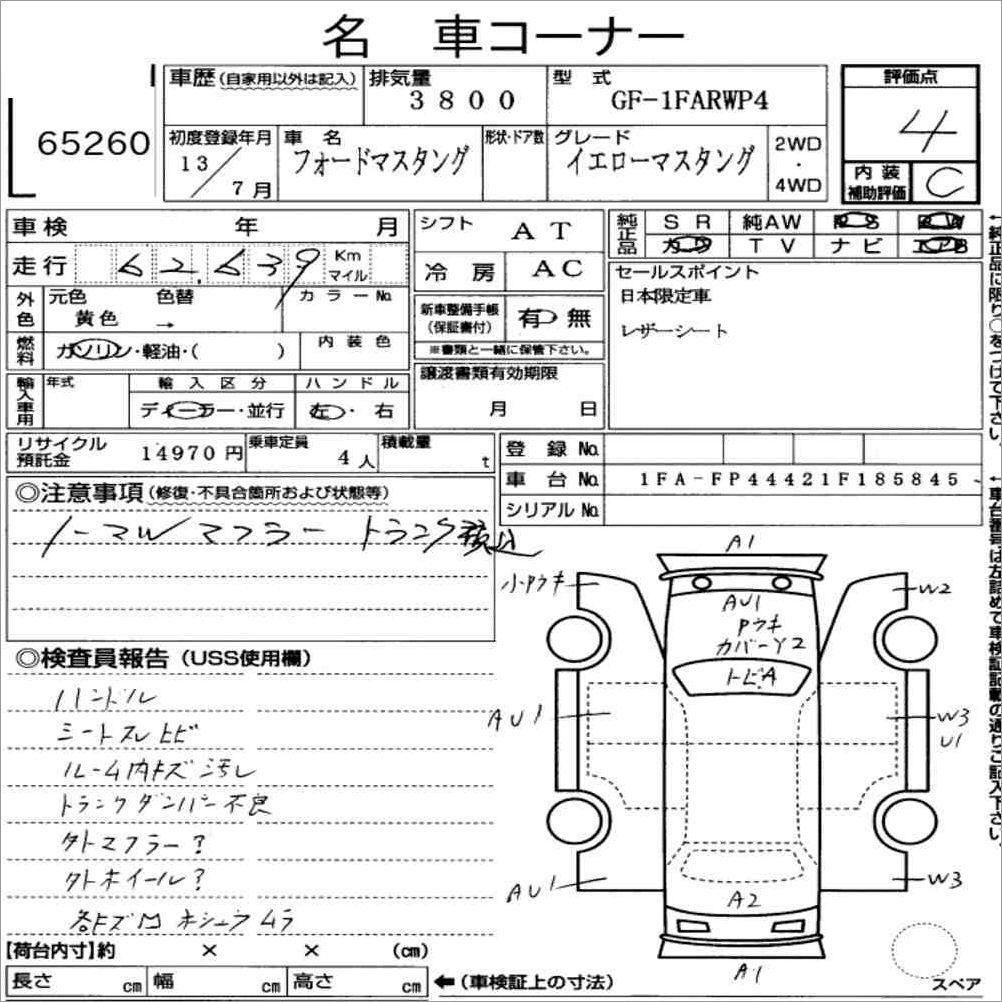 名 車コーナー
65260
車歴(自家用以外は記入)
排気量
3800
型式
GF-1FARWP4
評価点
4
初度登録年月
13/7月
車名
フォードマスタング
形状・ドア数
グレード
イエローマスタング
2WD
・
4WD
内装
補助評価
C
車検 年 月
走行 62,639 Km
マイル
外色
元色 色替 カラーNo.
黄色 →
燃料
ガソリン・軽油・( )
内装色
輸入車用
年式
輸入区分
ハンドル
ディーラー・並行
左・右
シフト
AT
冷房
AC
新車整備手帳
(保証書付)
有・無
※書類と一緒に保管下さい。
譲渡書類有効期限
月 日
純正品
SR 純AW PS PW
カワ TV ナビ エアB
セールスポイント
日本限定車
レザーシート
←純正品に限り○をつけて下さい。
リサイクル
預託金
14970円
乗車定員
4人
積載量
t
登録No.
車台No.
1FA-FP44421F185845
シリアルNo.
←車台番号は左詰めで車検証記載の通りご記入下さい。
◎注意事項(修復・不具合箇所および状態等)
ノーマルマフラー トランク積込
◎検査員報告(USS使用欄)
ハンドル
シートスレトビ
ルーム内キズ汚レ
トランクダンパー不良
外トマフラー?
外トホイール?
各キズ凹 ホシュウムラ
A1
小Pウキ
W2
AU1
Pウキ
カバーY2
トビA
AU1
W3
U1
AU1
W3
A2
A1
スペア
【荷台内寸】約 × × (cm)
長さ cm 幅 cm 高さ cm
←(車検証上の寸法)